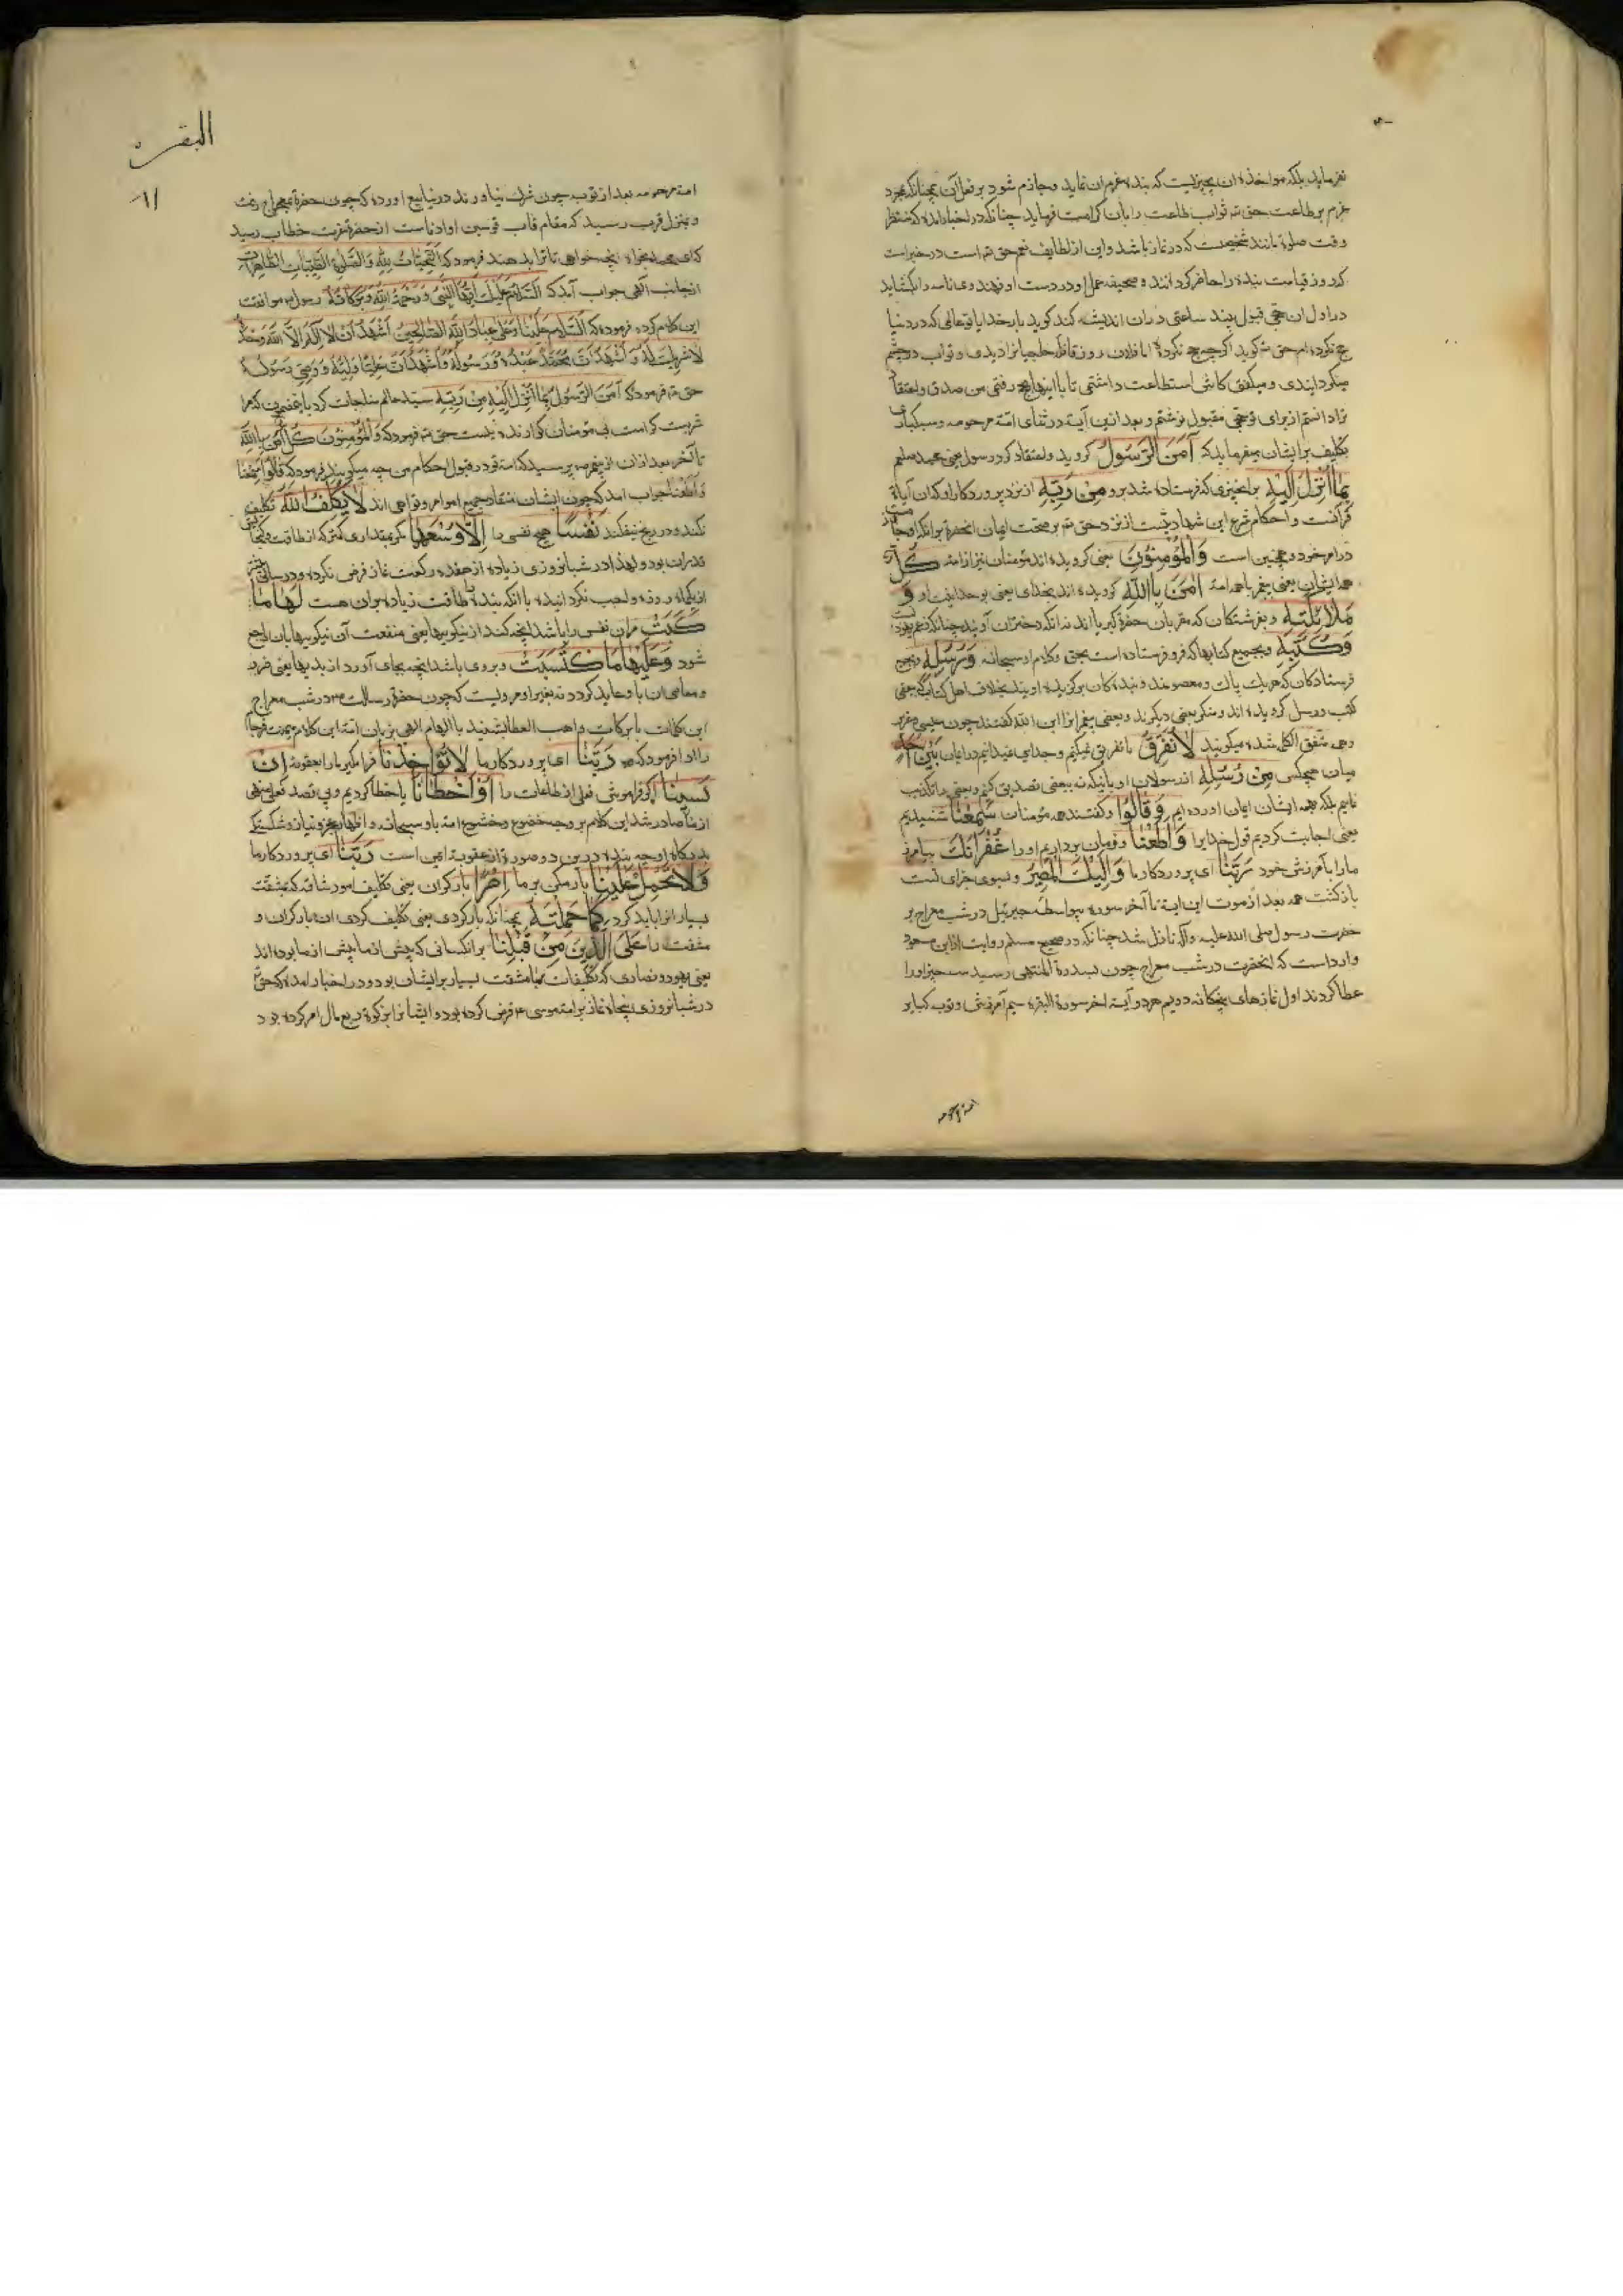 نفرماید بلکه مواخذه ان بچیزیست که بنده عزم ان نماید و جازم شود بر فعل آن همچنانکه بمجرد
عزم بر طاعت حق ته ثواب طاعت را بان کرامت فرماید چنانکه در اخبار امده که منتظر
وقت صلوة مانند شخصیست که در نماز باشد و این از لطایف نعم حق ته است در خبر است
که روز قیامت بنده را حاضر کردانند و صحیفه عمل او در دست او نهند وی نامه را بکشاید
در اول ان حجی قبول بیند ساعتی در ان اندیشه کند کوید بار خدایا تو عالمی که در دنیا
حج نکرده ام حق ته کوید اکرچه حج نکردهٔ اما فلان روز قافله حاجیانرا دیدی و آب در چشم
میکردانیدی و میکفتی کاش استطاعت داشتمی تا با اینها بحج رفتمی من صدق و اعتقاد
ترا دانستم از برای تو حجی مقبول نوشتم و بعد ازین آیه در ثنای امة مرحومه و سبکباری
تکلیف بر ایشان میفرماید که اٰمَنَ الرَّسُولُ کروید و اعتقاد کرد رسول یعنی محمد صلعم
بِمٰا اُنْزِلَ اِلَیْهِ بر انچیزی که فرستاده شد برو مِنْ رَبِّهِ از نزد پروردکار او که ان آیات
قرآنست و احکام شرع این شهادتیست از نزد حق ته بر صحت ایمان انحضرة بر انکه او جازمست
در امر خود و همچنین است وَالْمُؤْمِنُونَ یعنی کرویده اند مؤمنان نیز از امة کُلٌّ
همه ایشان یعنی پیغمبر با همه امة اٰمَنَ بِاللّٰهِ کرویده اند بخدای یعنی بوحدانیت او وَ
مَلٰائِکَتِهِ و بفرشتکان که مقربان حضرة کبریا اند نه انکه دختران آویند چنانکه زعم یهود است
وَکُتُبِهِ و بجمیع کتابها که فرو فرستاده است بحق و کلام او سبحانه وَرُسُلِهِ و بجمیع
فرستادکان که هر یک پاک و معصومند و بنده کان برکزیده اویند بخلاف اهل کتاب که ببعضی
کتب و رسل کرویده اند و منکر بعضی دیکرند و بعضی پیغمبرانرا ابن الله کفتند چون عیسی و عزیر
و همه متفق الکلمه شده میکویند لٰا نُفَرِّقُ ما تفریق نمیکنیم و جدایی نمیاندازیم در ایمان بَیْنَ اَحَدٍ
میان هیچکس مِنْ رُسُلِهِ از رسولان او بانیکه نه ببعضی تصدیق کنیم و بعضی را تکذیب
نماییم بلکه بهمه ایشان ایمان اورده ایم وَقٰالُوا و کفتند همه مؤمنان سَمِعْنٰا شنیدیم
یعنی اجابت کردیم قول خدایرا وَاَطَعْنٰا و فرمان برداریم او را غُفْرٰانَکَ بیامرز
ما را بآمرزش خود رَبَّنٰا ای پروردکار ما وَاِلَیْکَ الْمَصِیرُ و بسوی جزای تست
بازکشت همه بعد از موت این ایه تا آخر سوره بیواسطه جبرئیل در شب معراج بر
حضرت رسول صلی الله علیه وآله نازل شد چنانکه در صحیح مسلم روایت از ابن مسعود
وارد است که انحضرت در شب معراج چون بسدرة المنتهی رسید سه چیز او را
عطا کردند اول نمازهای پنجکانه دویم هر دو آیة اخر سورة البقره سیم آمرزش و توب کبایر
امة مرحومه
البقره
۶۱
امة مرحومه بعد از توب چون شرک نیاورند در ینابیع اورده که چون حضرة بمعراج رفت
و بمنزل قرب رسید که مقام قاب قوسین او ادناست از حضرة عزت خطاب رسید
که ای محمد بخواه انچه خواهی تا ترا بدهند فرمود که اَلتَّحِیّٰاتُ لِلّٰهِ وَالصَّلَوٰةُ الطَّیِّبٰاتُ الطّٰاهِرٰاتُ
از جانب الهی جواب آمد که اَلسَّلٰامُ عَلَیْکَ اَیُّهَا النَّبِیُّ وَرَحْمَةُ اللّٰهِ وَبَرَکٰاتُهُ رسول ص موافقت
این کلام کرده فرموده که اَلسَّلٰامُ عَلَیْنٰا وَعَلٰی عِبٰادِ اللّٰهِ الصّٰالِحِینَ اَشْهَدُ اَنْ لٰا اِلٰهَ اِلَّا اللّٰهُ وَحْدَهُ
لٰا شَرِیکَ لَهُ وَاَشْهَدُ اَنَّ مُحَمَّدًا عَبْدُهُ وَرَسُولُهُ وَاَشْهَدُ اَنَّ عَلِیًّا وَلِیُّهُ وَوَصِیُّ رَسُولِهِ
حق ته فرمود که اٰمَنَ الرَّسُولُ بِمٰا اُنْزِلَ اِلَیْهِ مِنْ رَبِّهِ سید عالم مناجات کرد
شربت کرامت بی مؤمنان کوارنده نیست حق ته فرمود که وَالْمُؤْمِنُونَ کُلٌّ اٰمَنَ بِاللّٰهِ
تا آخر بعد ازان از پیغمبر ص پرسید که امة تو در قبول احکام من چه میکویند فرمود که قٰالُوا سَمِعْنٰا
وَاَطَعْنٰا جواب امد که چون ایشان منقاد جمیع اوامر و نواهی اند لٰا یُکَلِّفُ اللّٰهُ تکلیف
نکند و در رنج نیفکند نَفْسًا هیچ نفسی را اِلّٰا وُسْعَهٰا مکر بمقداری کمتر که از طاقت و کنجایش
قدرت ان بود و لهذا در شبانه روزی زیاده از هفده رکعت نماز فرض نکرده و در سالی بیشتر
از یکماه روزه واجب نکردانیده با انکه بنده را طاقت زیاده بر ان هست لَهٰا مٰا
کَسَبَتْ مران نفس را باشد انچه کند از نیکوییها یعنی منفعت آن نیکوییها بان راجع
شود وَعَلَیْهٰا مَا اکْتَسَبَتْ و بر وی باشد انچه بجای آورد از بدیها یعنی ضرر
و معاصی ان با و عاید کردد نه بغیر او مرویست که چون حضرة رسالت ص در شب معراج
این کلمات بابرکات واهب العطایا شنید با الهام الهی بزبان امة این کلام یمنت فرجام
را ادا فرمود که رَبَّنٰا ای پروردکار ما لٰا تُؤٰاخِذْنٰا فرا مکیر ما را بعقوبة اِنْ
نَسِینٰا اکر فراموش فعلی از طاعات را اَوْ اَخْطَأْنٰا یا خطا کردیم و بی قصد فعلی منهی
از ما صادر شد این کلام بر وجه خضوع و خشوع امة با و سبحانه و اظهار عجز و نیاز و شکستکی
بدرکاه او چه بنده درین دو صورة از عقوبة ایمن است رَبَّنٰا ای پروردکار ما
وَلٰا تَحْمِلْ عَلَیْنٰا بار مکن بر ما اِصْرًا بار کران یعنی تکلیف امور شاقه که بمشقت
بسیار انرا باید کرد کَمٰا حَمَلْتَهُ همچنانکه بار کردی یعنی تکلیف کردی ان بار کران و
مشقت را عَلَی الَّذِینَ مِنْ قَبْلِنٰا بر انکسانی که پیش از ما بوده اند
یعنی یهود و نصاری که تکلیفات بامشقت بسیار بر ایشان بود و در اخبار امده که حق ته
در شبانروزی پنجاه نماز بر امة موسی ع فرض کرده بود و ایشانرا بزکوة ربع مال امر کرده بود